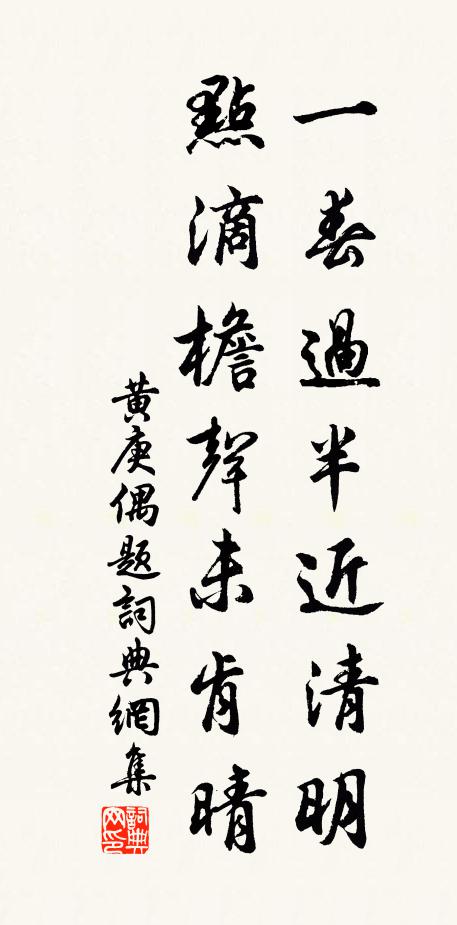 一春過半近清明
點滴檐聲未肯晴
黄庚偶題詞典網集
詞典网印